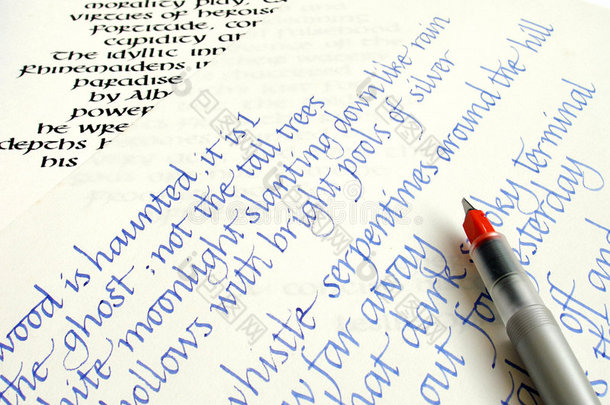 morality play, c
virtues of heroism
fortitude, cou
cupidity an
the idyllic inn
Rhinemaidens in
paradise
by Alb
power
he wre
depths h
his
wood is haunted, it is I
the ghost; not the tall trees
white moonlight slanting down like rain
hollows with bright pools of silver
whistle serpentines around the hill
far away
hat dark smoky terminal
out for yesterday
off and